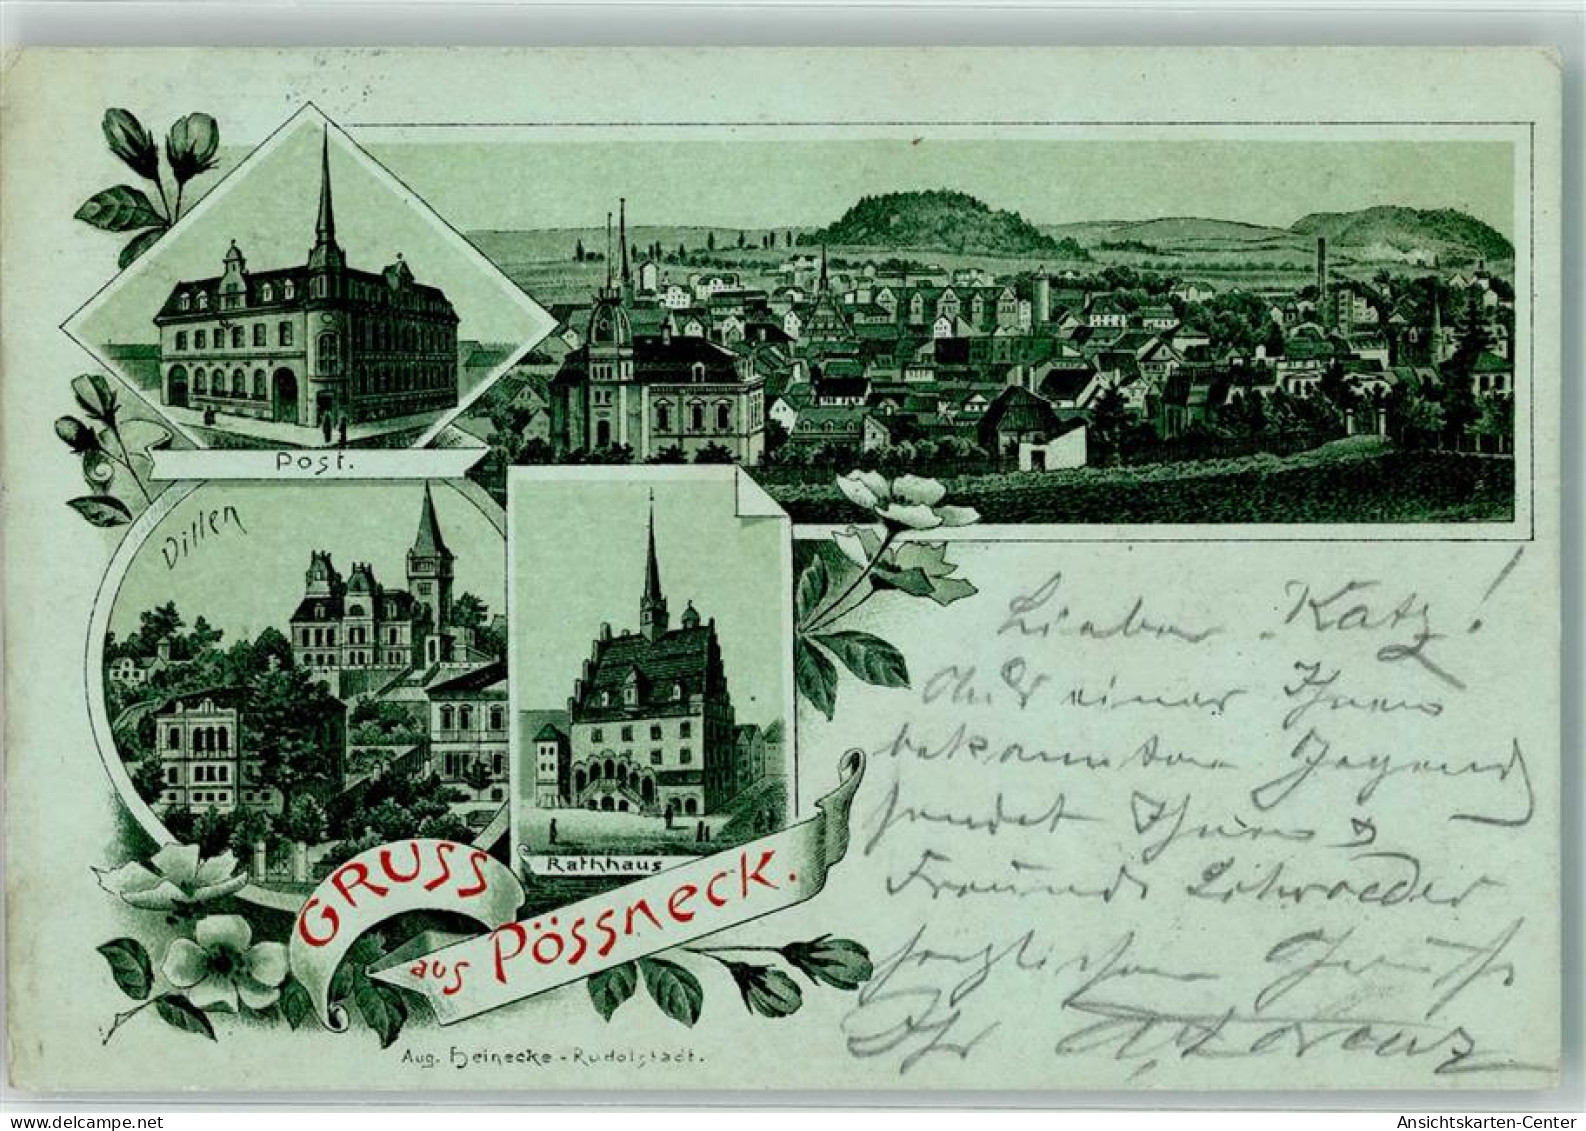 Post.
Villen
Rathhaus
GRUSS
aus Pössneck.
Aug. Heinecke - Rudolstadt.
Lieber Katz!
Aus einer Ihnen
bekannten Gegend
sendet Ihnen &
Freund Schroeder
herzlichen Gruß
Ihr
www.ansichtskarten-center.de
Ansichtskarten-Center